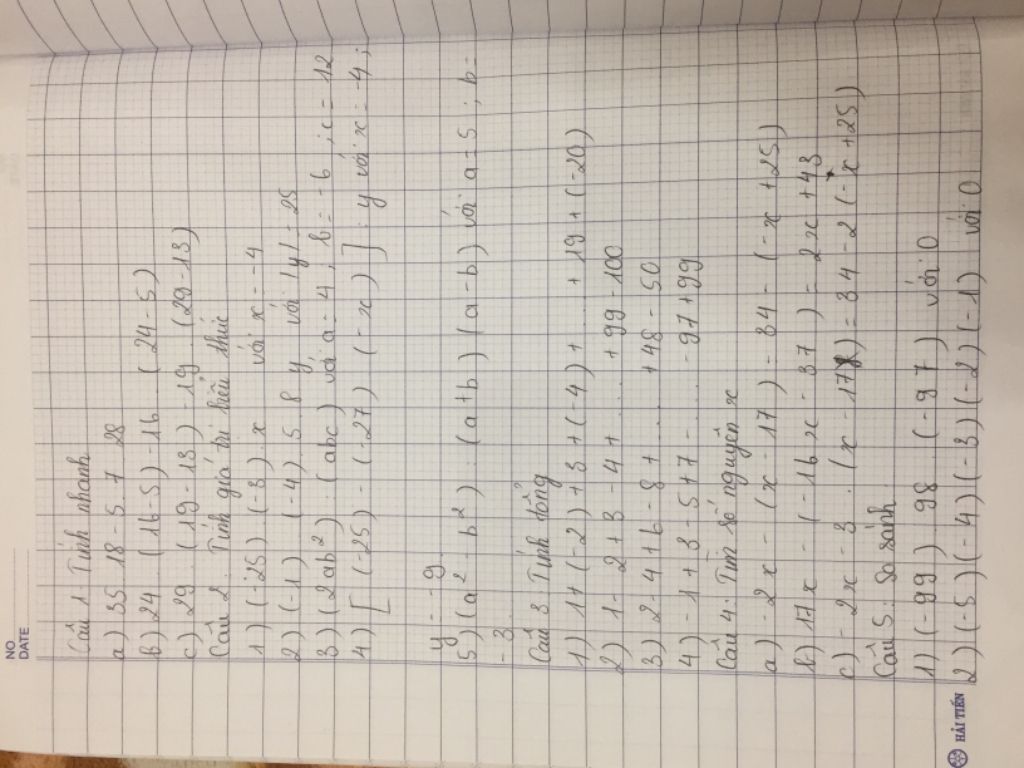 NO.
DATE
Câu 1. Tính nhanh
a) 35. 18 - 5. 7. 28
b) 24. (16 - 5) - 16. (24 - 5)
c) 29. (19 - 13) - 19. (29 - 13)
Câu 2. Tính giá trị biểu thức
1) (-25). (-3). x với x = -4
2) (-1). (-4). 5. 8. y với |y| = 25
3) (2ab²) : (abc) với a = 4; b = -6; c = 12
4) [(-25). (-27). (-x)] : y với x = -4;
y = -9
5) (a² - b²) : (a + b) (a - b) với a = 5; b =
-3.
Câu 3: Tính tổng
1) 1 + (-2) + 3 + (-4) + ... + 19 + (-20)
2) 1 - 2 + 3 - 4 + .... + 99 - 100
3) 2 - 4 + 6 - 8 + .... + 48 - 50
4) -1 + 3 - 5 + 7 - .... - 97 + 99
Câu 4: Tìm số nguyên x
a) -2x - (x - 17) = 34 - (-x + 25)
b) 17x - (-16x - 37) = 2x + 43
c) -2x - 3. (x - 17) = 34 - 2(-x + 25)
Câu 5: So sánh
1) (-99). 98. (-97) với 0
2) (-5)(-4)(-3)(-2)(-1) với 0
HẢI TIẾN